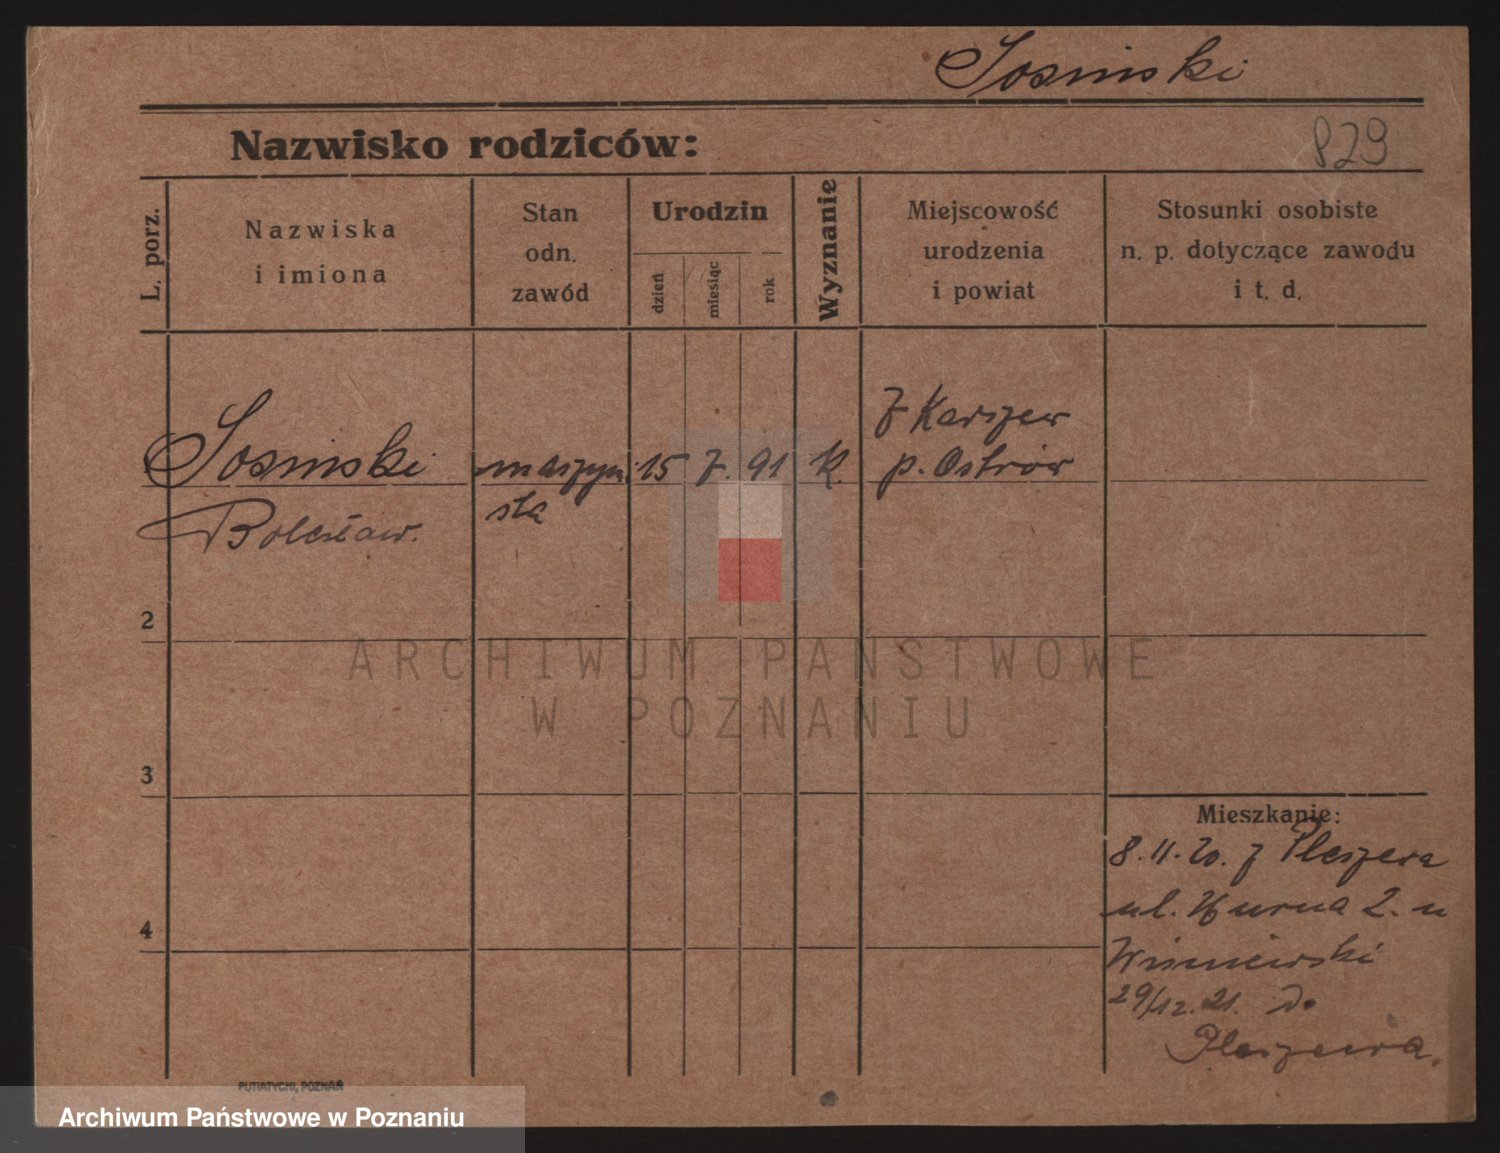 Sosinski
Nazwisko rodziców:
829
L. porz.
Nazwiska
i imiona
Stan
odn.
zawód
Urodzin
dzień
miesiąc
rok
Wyznanie
Miejscowość
urodzenia
i powiat
Stosunki osobiste
n. p. dotyczące zawodu
i t. d.
Sosinski
Bolesław.
maszyni
sta
15 7. 91
K.
Karszew
p. Ostrów
2
3
4
Mieszkanie:
8.11.20. z Pleszewa
ul. 2. u
Wisniewski
29/12.21. do
Pleszewa.
PUTIATYCKI, POZNAŃ
ARCHIWUM PAŃSTWOWE
W POZNANIU
Archiwum Państwowe w Poznaniu